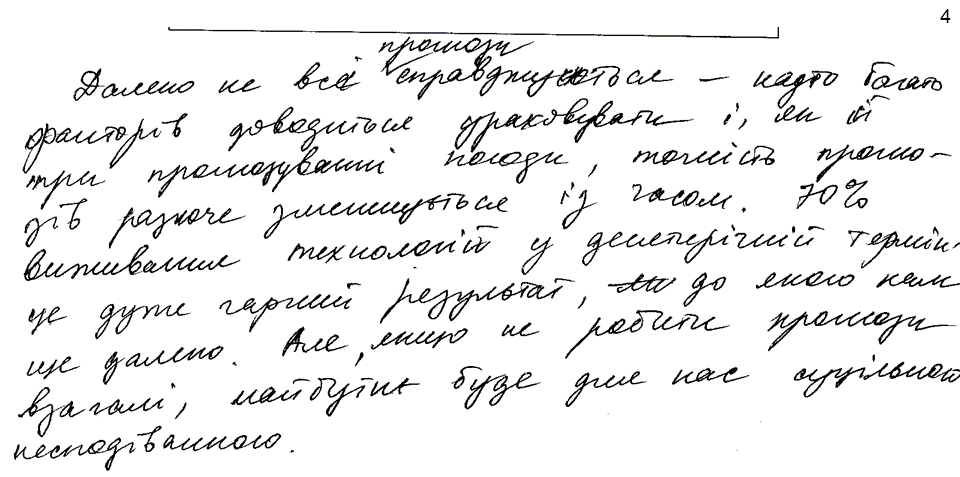 4
прогнози
Далеко не всі справджуються — надто багато
факторів доводиться ураховувати і, як й
при прогнозуванні погоди, точність прогно-
зів різко зменшується із часом. 70%
виживання технологій у десятерічний термін
це дуже гарний результат, до якого нам
ще далеко. Але, якщо не робити прогнози
взагалі, майбутнє буде для нас суцільною
несподіванкою.